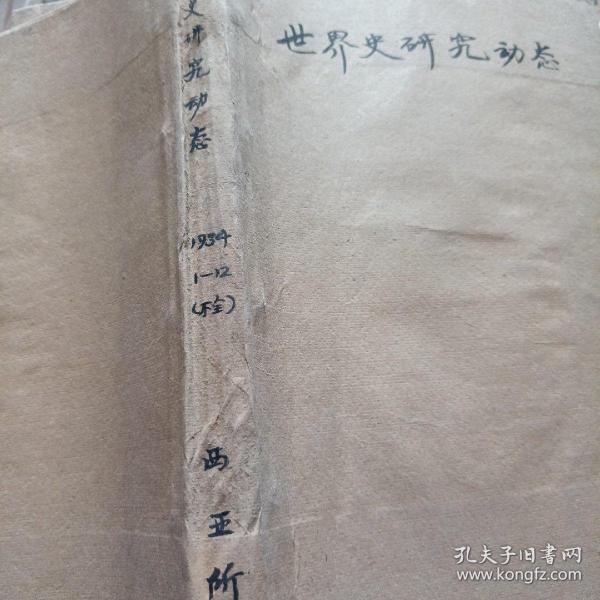 世界史研究动态
史研究动态
1984
1-12
(不全)
西亚所
孔夫子旧书网
www.kongfz.com